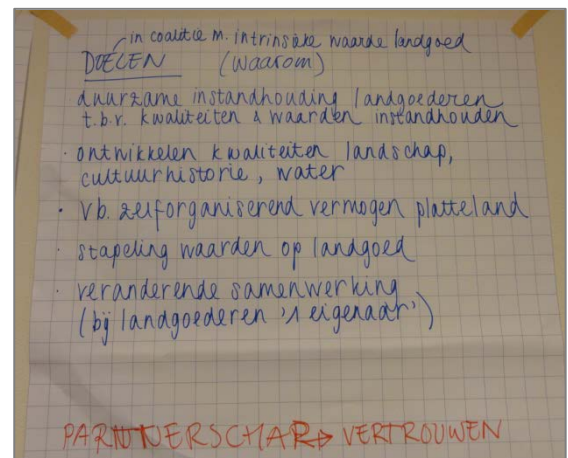 in coalitie m. intrinsieke waarde landgoed
DOELEN (waarom)
duurzame instandhouding landgoederen
t.b.v. kwaliteiten & waarden instandhouden
· ontwikkelen kwaliteiten landschap,
cultuurhistorie, water
· vb. zelforganiserend vermogen platteland
· stapeling waarden op landgoed
· veranderende samenwerking
(bij landgoederen '1 eigenaar')
PARTNERSCHAP → VERTROUWEN